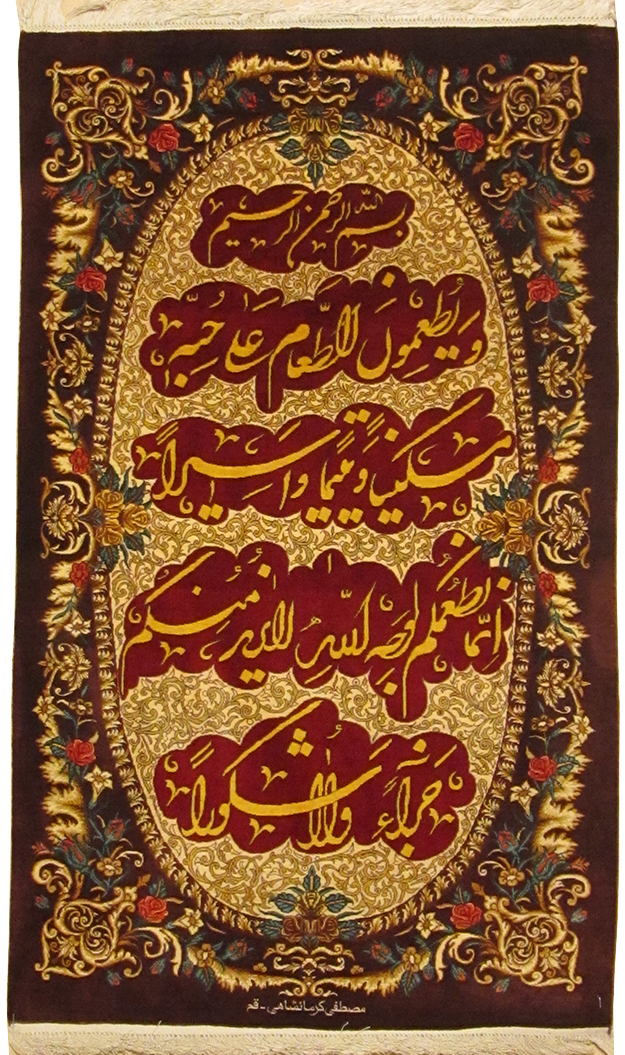 بسم الله الرحمن الرحيم
وَيُطعِمُونَ الطَّعام عَلى حُبِّه
مسكيناً وَيتيماً واَسيراً
اِنَّما نُطعُمكُم لِوجَه اللّهِ لانُريدُ مِنكُم
جَزآءً وَلاشُكُوراً
مصطفی کرمانشاهی - قم
۱